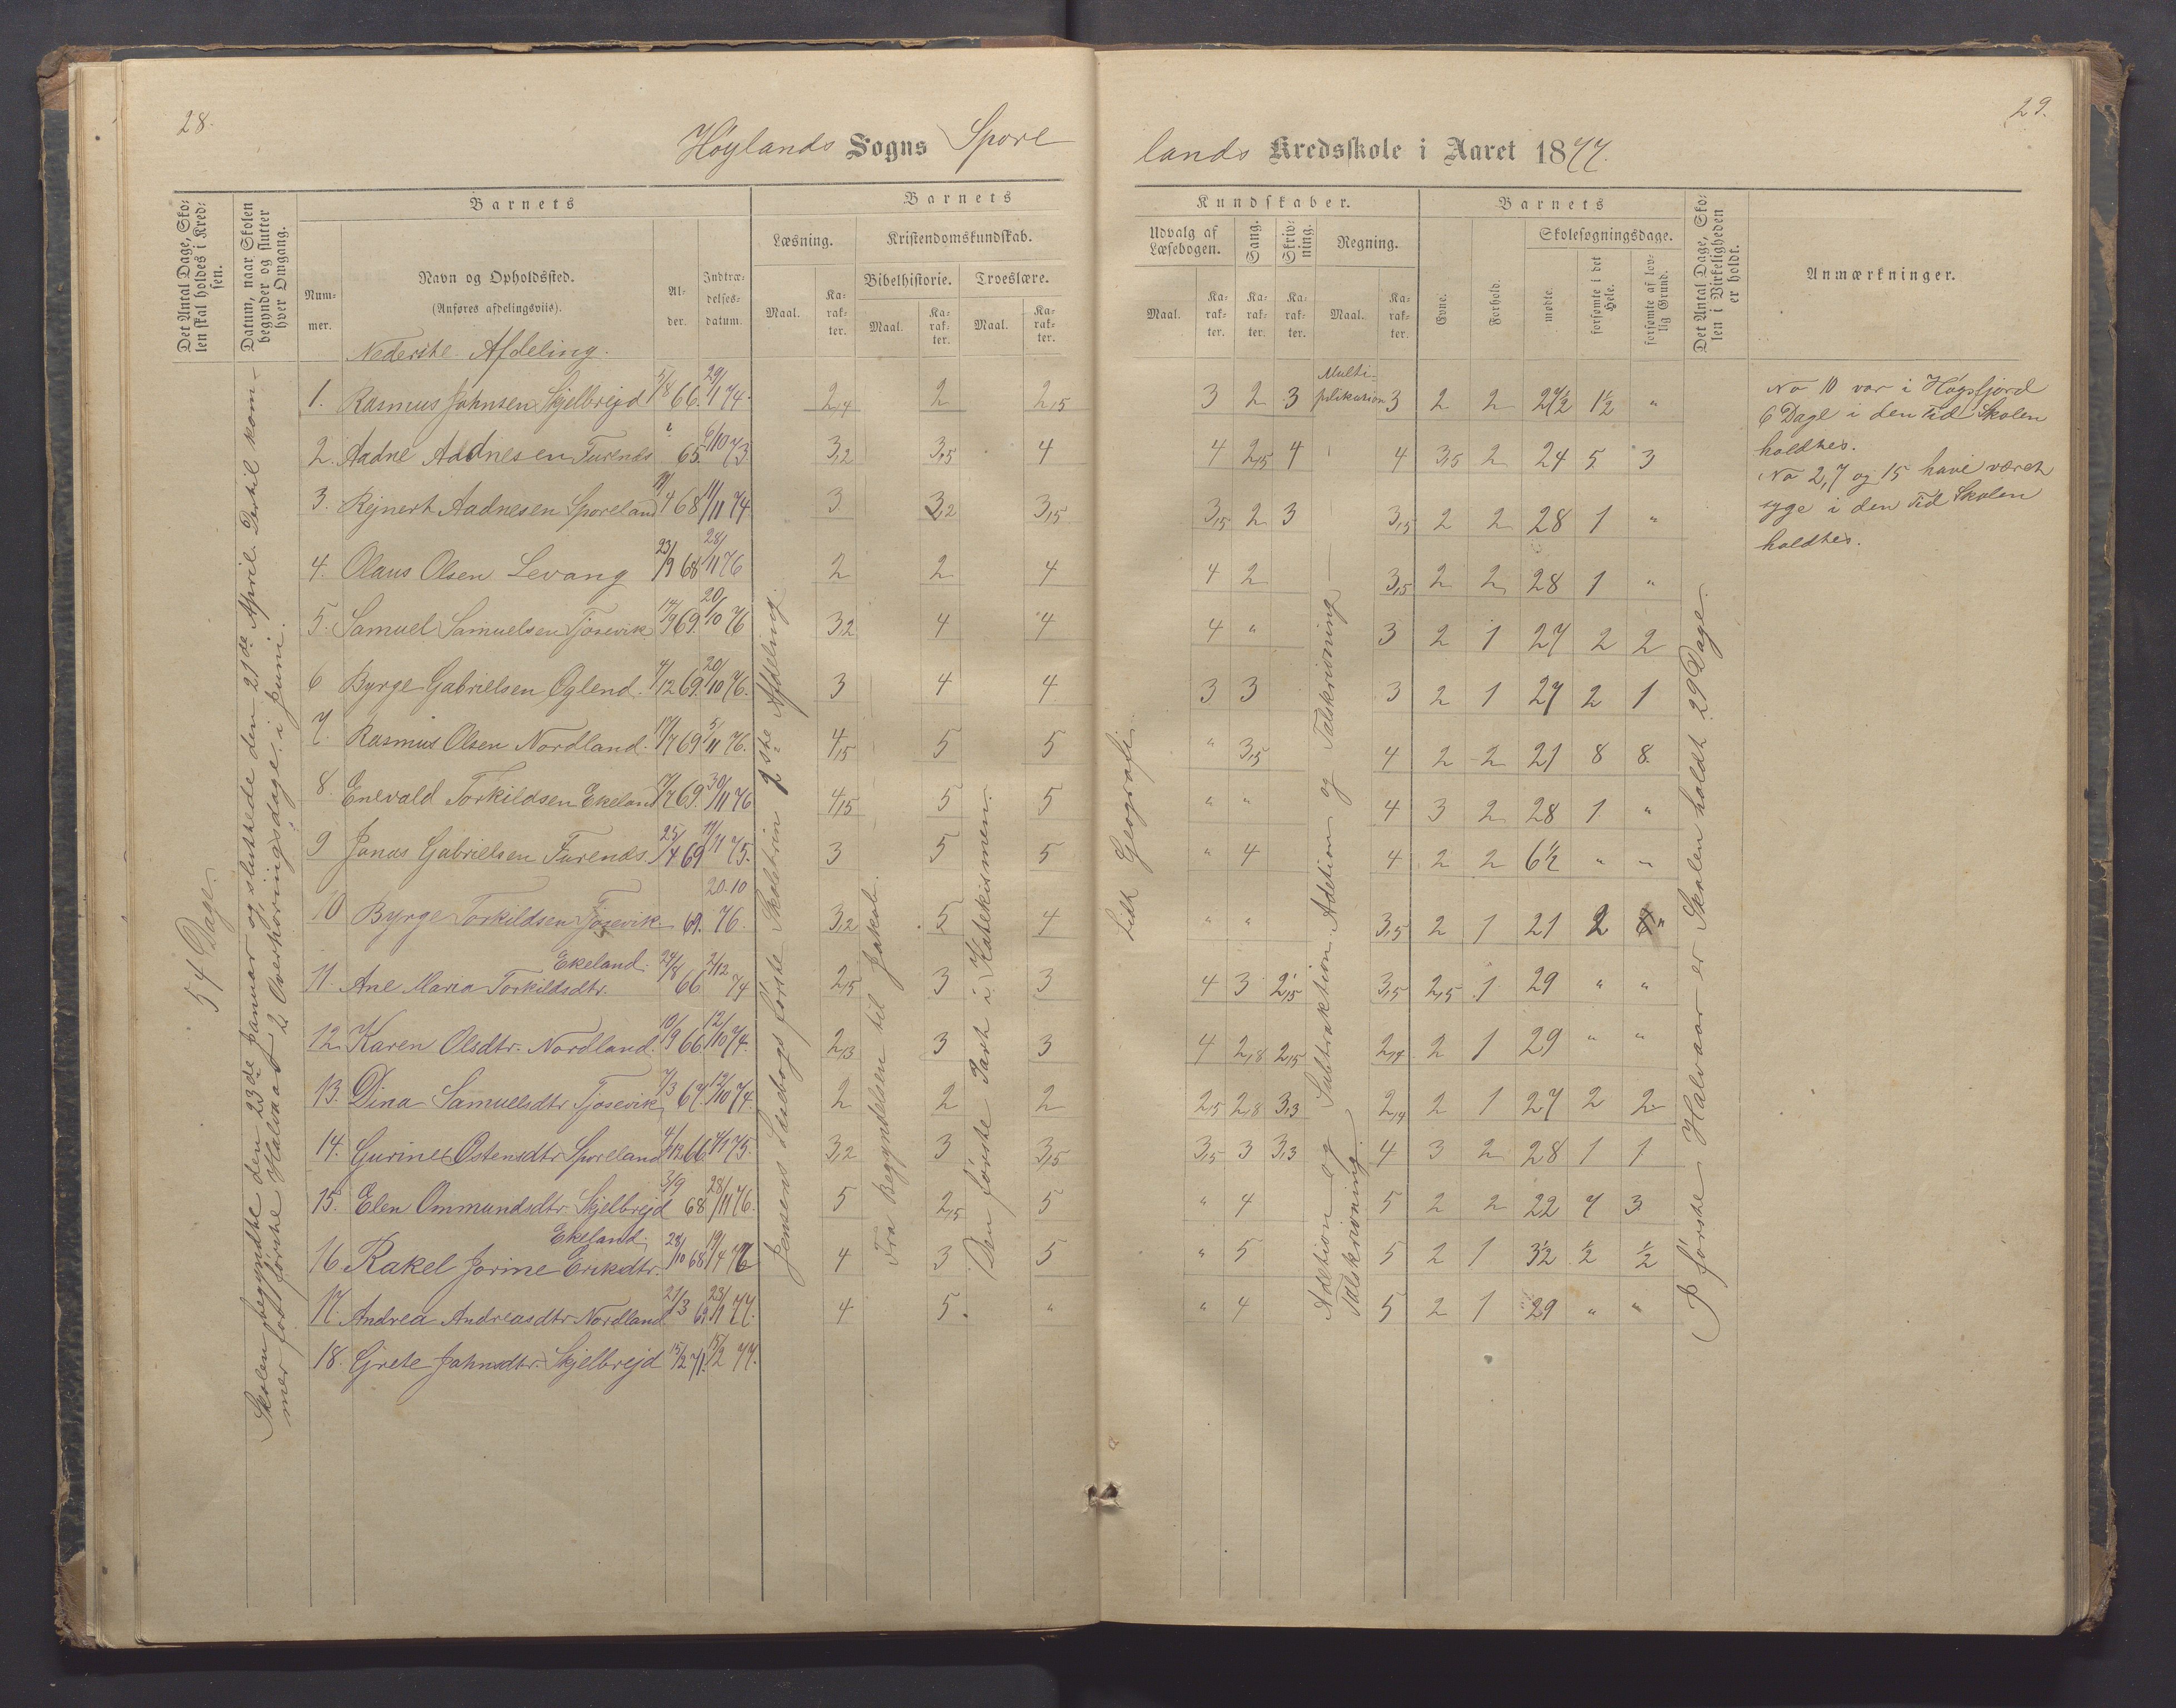 28.
Høylands Sogns Spore
Det Antal Dage, Sko-
len skal holdes i Kred-
sen.
Datum, naar Skolen
begynder og slutter
hver Omgang.
Barnets
Barnets
Num-
mer.
Navn og Opholdssted.
(Anføres afdelingsviis).
Al-
der.
Indtræ-
delses-
datum.
Læsning.
Kristendomskundskab.
Bibelhistorie.
Troeslære.
Maal.
Ka-
rak-
ter.
Maal.
Ka-
rak-
ter.
Maal.
Ka-
rak-
ter.
Nederste Afdeling.
54 Dage.
Skolen begyndte den 23de Januar og sluttede den 21de April. Dertil kom-
mer for første Halvaar 2 Overhøringsdage i Juni.
Jensens Læsebogs første Skoletrin 2den Afdeling.
Fra Begyndelsen til Jakob.
Den første Part i Katekismen.
1. Rasmus Johnsen Skjelbrejd 5/8 66. 29/1 74. 2,4 2 2,15
2. Aadne Aadnesen Furenes 65. 6/10 73 3,2 3,15 4
3. Rejnert Aadnesen Sporeland 68 11/11 74. 3 3,2 3,15
4. Olaus Olsen Levang 23/9 68 28/11 76 2 2 4
5. Samuel Samuelsen Tjosevik 69. 20/10 76 3,2 4 4
6 Byrge Gabrielsen Oglend. 4/12 69. 20/10 76. 3 4 4
7. Rasmus Olsen Nordland. 17/7 69 5/11 76. 4,15 5 5
8. Enevald Torkildsen Ekeland 69. 30/11 76 4,15 5 5
9 Jonas Gabrielsen Furenes. 25/4 69 11/11 75. 3 5 5
10 Byrge Torkildsen Tjosevik 69. 20.10 76. 3,2 5 4
11. Ane Maria Torkildsdtr. Ekeland. 66 2/12 74 2,15 3 3
12. Karen Olsdtr. Nordland. 10/9 66. 12/10 74. 2,3 3 3
13. Dina Samuelsdtr Tjosevik 7/3 67. 12/10 74. 2 2 2
14. Gurine Ostensdtr Sporeland 4/12 66. 75. 3,2 3 3,15
15. Elen Ommundsdtr. Skjelbrejd 3/9 68 28/11 76. 5 2,15 5
16 Rakel Jorine Eriksdtr. Ekeland. 28/10 68 19/4 76 4 3 5
17. Andrea Andreasdtr Nordland 21/3 23/1 77. 4 5. "
18. Grete Johnsdtr. Skjelbrejd 15/2 71. 15/2 77.
29.
lands Kredsskole i Aaret 1877.
Kundskaber.
Barnets
Udvalg af
Læsebogen.
Sang.
Skriv-
ning.
Regning.
Skolesøgningsdage.
Maal.
Ka-
rak-
ter.
Ka-
rak-
ter.
Ka-
rak-
ter.
Maal.
Ka-
rak-
ter.
Evne.
Forhold.
mødte.
forsømte i det
Hele.
forsømte af lov-
lig Grund.
Det Antal Dage, Sko-
len i Virkeligheden
er holdt.
Anmærkninger.
Lidt Geografi.
Multi-
plikation
Subtraktion Adetion og Talskrivning
Adetion og
Talskrivning.
I første Halvaar er Skolen holdt 29 Dage.
3 2 3 3 2 2 27½ 1½ "
4 2,15 4 4 3,5 2 24 5 3
3,15 2 3 3,5 2 2 28 1 "
4 2 3,5 2 2 28 1 "
4 " 3 2 1 27 2 2
3 3 3 2 1 27 2 1
" 3,15 4 2 2 21 8 8.
" " 4 3 2 28 1 "
" 4 4 2 2 6½ " "
" " 3,5 2 1 21 2 "
4 3 2,15 3,5 2,5 1 29 " "
4 2,8 2,15 2,9 2 1 29 " "
2,5 2,8 3,3 2,9 2 1 27 2 2
3,5 3 3,3 4 3 2 28 1 1
" 4 5 2 2 22 7 3
" 5 5 2 1 3½ ½ ½
" 4 5 2 1 29 " "
No 10 var i Høgsfjord
6 Dage i den tid Skolen
holdtes.
No 2, 7 og 15 have været
syge i den Tid Skolen
holdtes.